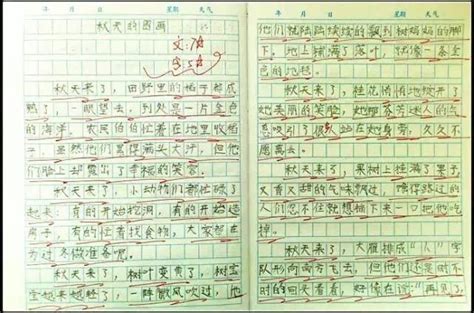 年 月 日 星期 天气
秋天的图画
秋天来了，田野里的稻子都成
熟了，一眼望去，到处是一片金色
的海洋。农民伯伯忙着在地里收稻
子，虽然他们累得满头大汗，但他
们脸上却露出了幸福的笑容。
秋天来了，小动物们都忙碌了
起来：有的开始挖洞，有的开始造
房子，有的忙着找食物，大家都在
为过冬做准备呢。
秋天来了，树叶变黄了，树宝
宝越来越轻了，一阵微风吹过，他
年 月 日 星期 天气
们就陆陆续续的飘到树妈妈的脚
下。地上铺满了落叶，就像一条金
色的地毯。
秋天来了，桂花悄悄地绽开了
她美丽的笑脸，她那芬芳迷人的气
息吸引了很多人站在她身旁，久久不
愿离去。
秋天来了，果树上挂满了果子，
又香又甜的气味飘过，馋得路过的
人们忍不住就想摘下来一口把他吃
掉。
秋天来了，大雁排成“人”字
队形向南方飞去，但他们还是时不
时的回头看看，好像在说：“再见